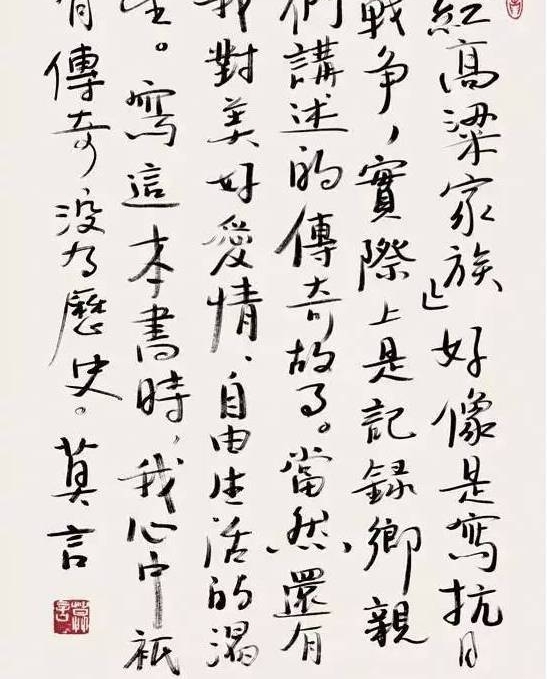 紅高粱家族』好像是寫抗日
戰争，實際上是記録鄉親
們講述的傳奇故事。當然還有
我對美好愛情、自由生活的渴
生。寫這本書時，我心中祇
有傳奇没有歷史。莫言
莫言